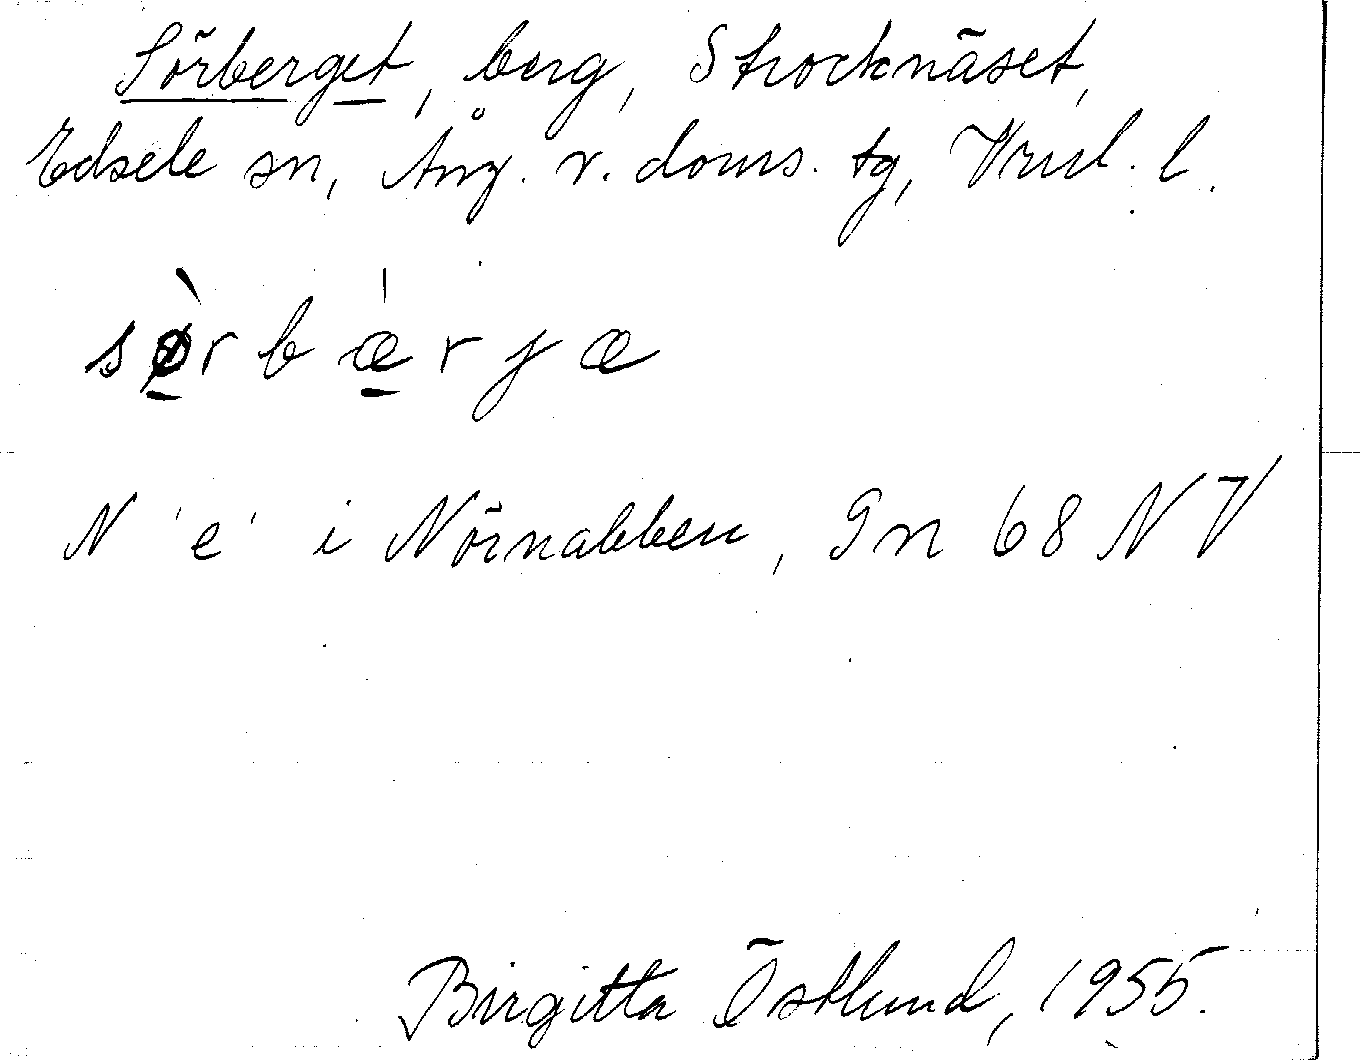 Sörberget, berg, Strocknäset,
Edsele sn, Ång. v. doms. tg, Vnl. l.
sø̀rbæ̍rjæ
N 'e' i Nörnabben, Gn 68 NV
Birgitta Östlund, 1955.